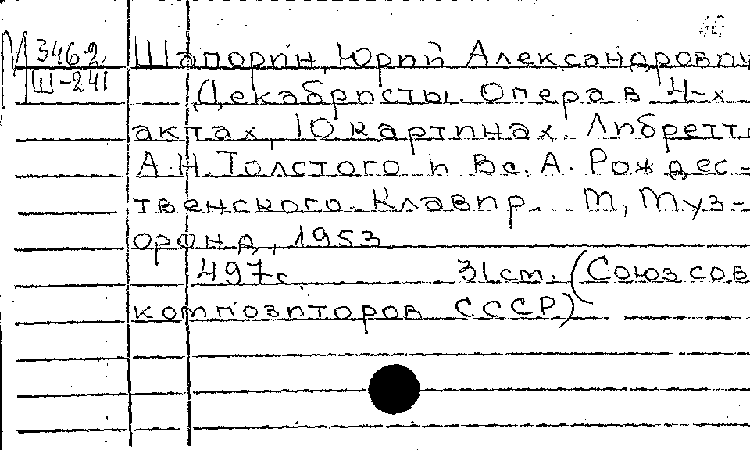 М 3462
Ш-241
Шапорин, Юрий Александрович
Декабристы. Опера в 4-х
актах, 10 картинах. Либретто
А.Н. Толстого и Вс. А. Рождес-
твенского. Клавир. М, Муз-
фонд, 1953
497 с. 31 cm. (Союз сов
композиторов СССР)